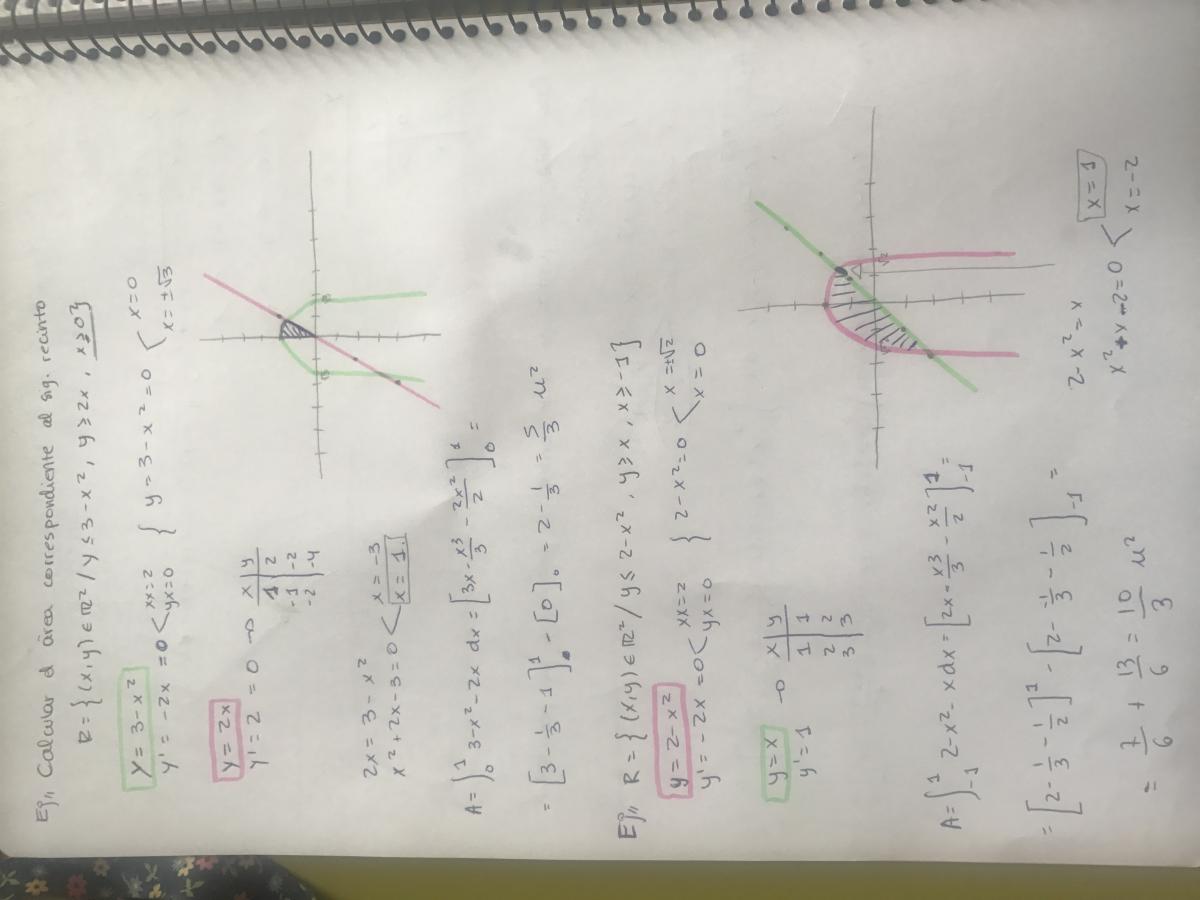 Ej,, Calcular el área correspondiente al sig. recinto
R = { (x,y) ∈ ℝ² / y ≤ 3 - x², y ≥ 2x, x ≥ 0 }
y = 3 - x² { y = 3 - x² = 0 < x = 0
y' = -2x = 0 < xx = 2 yx = 0 x = ±√3
y = 2x
y' = 2 = 0 →
x | y
1 | 2
-1 | -2
-2 | -4
2x = 3 - x²
x² + 2x - 3 = 0 < x = -3
x = 1.
A = ∫₀¹ 3 - x² - 2x dx = [3x - x³/3 - 2x²/2]₀¹ =
= [3 - 1/3 - 1]¹₀ - [0]₀ = 2 - 1/3 = 5/3 u²
Ej,, R = { (x,y) ∈ ℝ² / y ≤ 2 - x², y ≥ x, x ≥ -1 }
y = 2 - x²
y' = -2x = 0 < xx = 2 yx = 0 } 2 - x² = 0 < x = ±√2 x = 0
y = x →
y' = 1
x | y
1 | 1
2 | 2
3 | 3
√2
A = ∫₋₁¹ 2 - x² - x dx = [2x - x³/3 - x²/2]₋₁¹ =
2 - x² = x
x² + x - 2 = 0 < x = 1
x = -2
= [2 - 1/3 - 1/2]¹ - [2 - -1/3 - 1/2]₋₁ =
= 7/6 + 13/6 = 10/3 u²